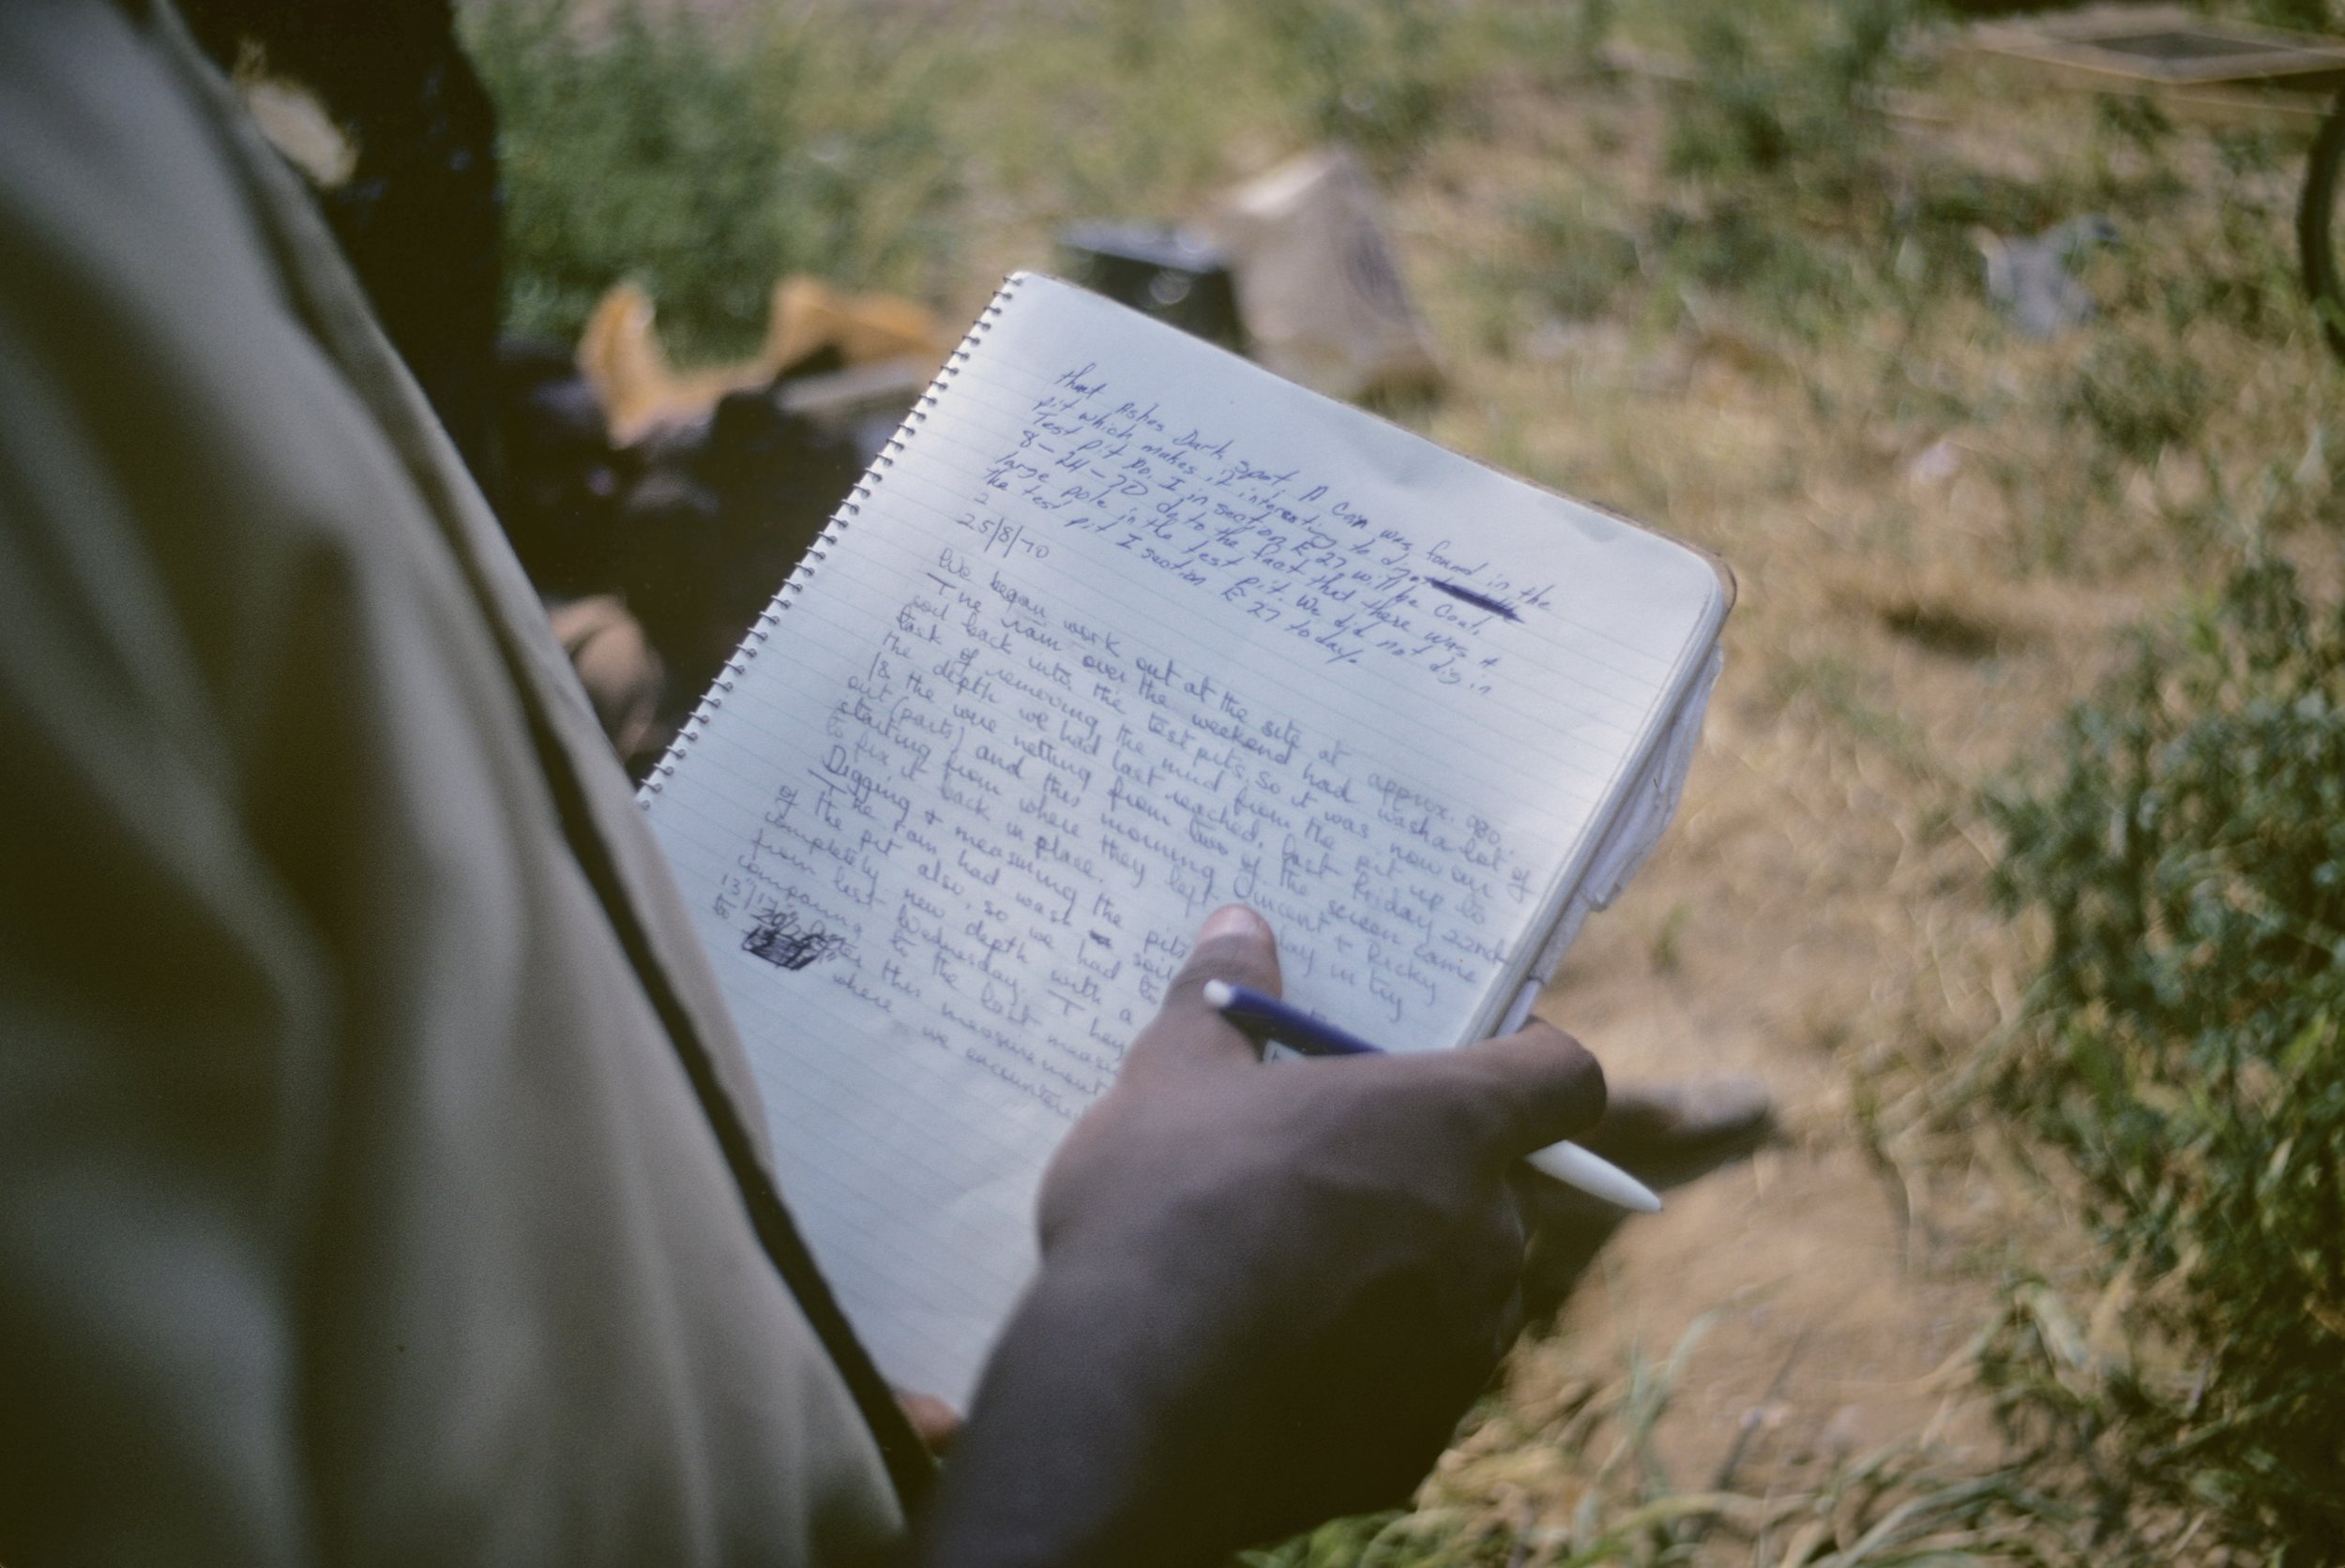 that Ashes Dark spot. A Coin was found in the
pit which makes it interesting to dig
Test pit no. I in section E27 will be Cont.
8-24-70 do to the fact that there was a
large pole in the test pit. We did not dig in
the test pit I section E 27 today.
2
25/8/70
We began work out at the site at approx. 9:00.
The rain over the weekend had wash a lot of
soil back into the test pits, so it was now our
task of removing the mud from the pit up to
the depth we had last reached, last Friday 22nd
18 the wire netting from two of the screen came
out (parts) and this morning Vincent + Ricky
starting from where they left day in try
to fix it back in place.
Digging + measuring the pits
The rain had wash soil
of the pit also, so we had to
completely new depth with a
from last Wednesday. I
comparing to the last
13"/17" after this measurement
to 20" where we encountered